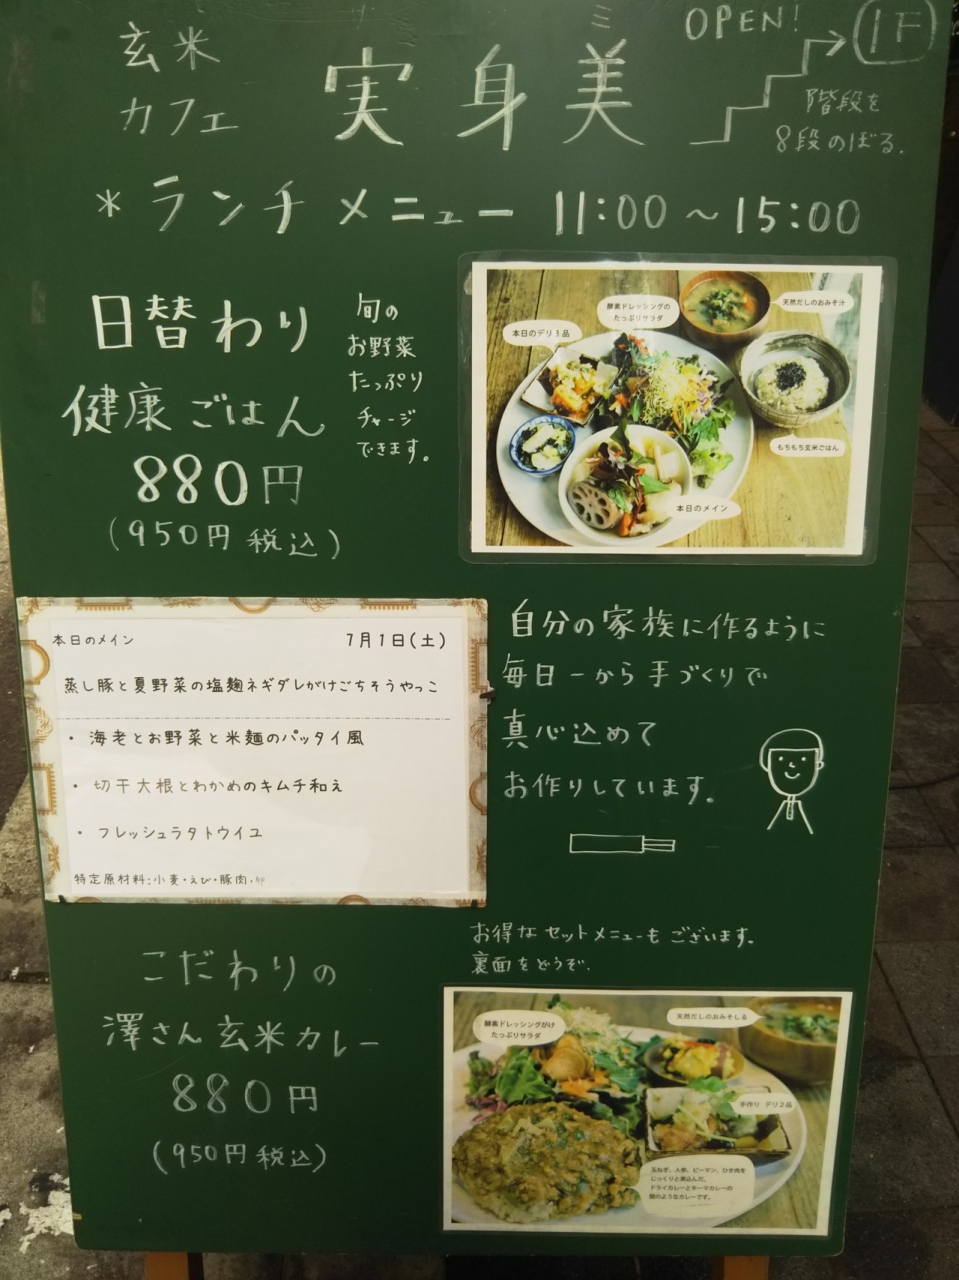 玄米
カフェ
実身美
ミ
OPEN!
1F
階段を
8段のぼる.
* ランチメニュー 11:00～15:00
日替わり
健康ごはん
880円
(950円 税込)
旬の
お野菜
たっぷり
チャージ
できます。
酵素ドレッシングの
たっぷりサラダ
天然だしのおみそ汁
本日のデリ3品
もちもち玄米ごはん
本日のメイン
本日のメイン 7月1日(土)
蒸し豚と夏野菜の塩麹ネギダレがけごちそうやっこ
・ 海老とお野菜と米麺のパッタイ風
・ 切干大根とわかめのキムチ和え
・ フレッシュラタトウイユ
特定原材料:小麦・えび・豚肉・卵
自分の家族に作るように
毎日一から手づくりで
真心込めて
お作りしています。
お得なセットメニューもございます。
裏面をどうぞ.
こだわりの
澤さん玄米カレー
880円
(950円 税込)
酵素ドレッシングがけ
たっぷりサラダ
天然だしのおみそしる
手作り デリ2品
玉ねぎ、人参、ピーマン、ひき肉を
じっくりと煮込んだ、
ドライカレーとキーマカレーの
間のようなカレーです。